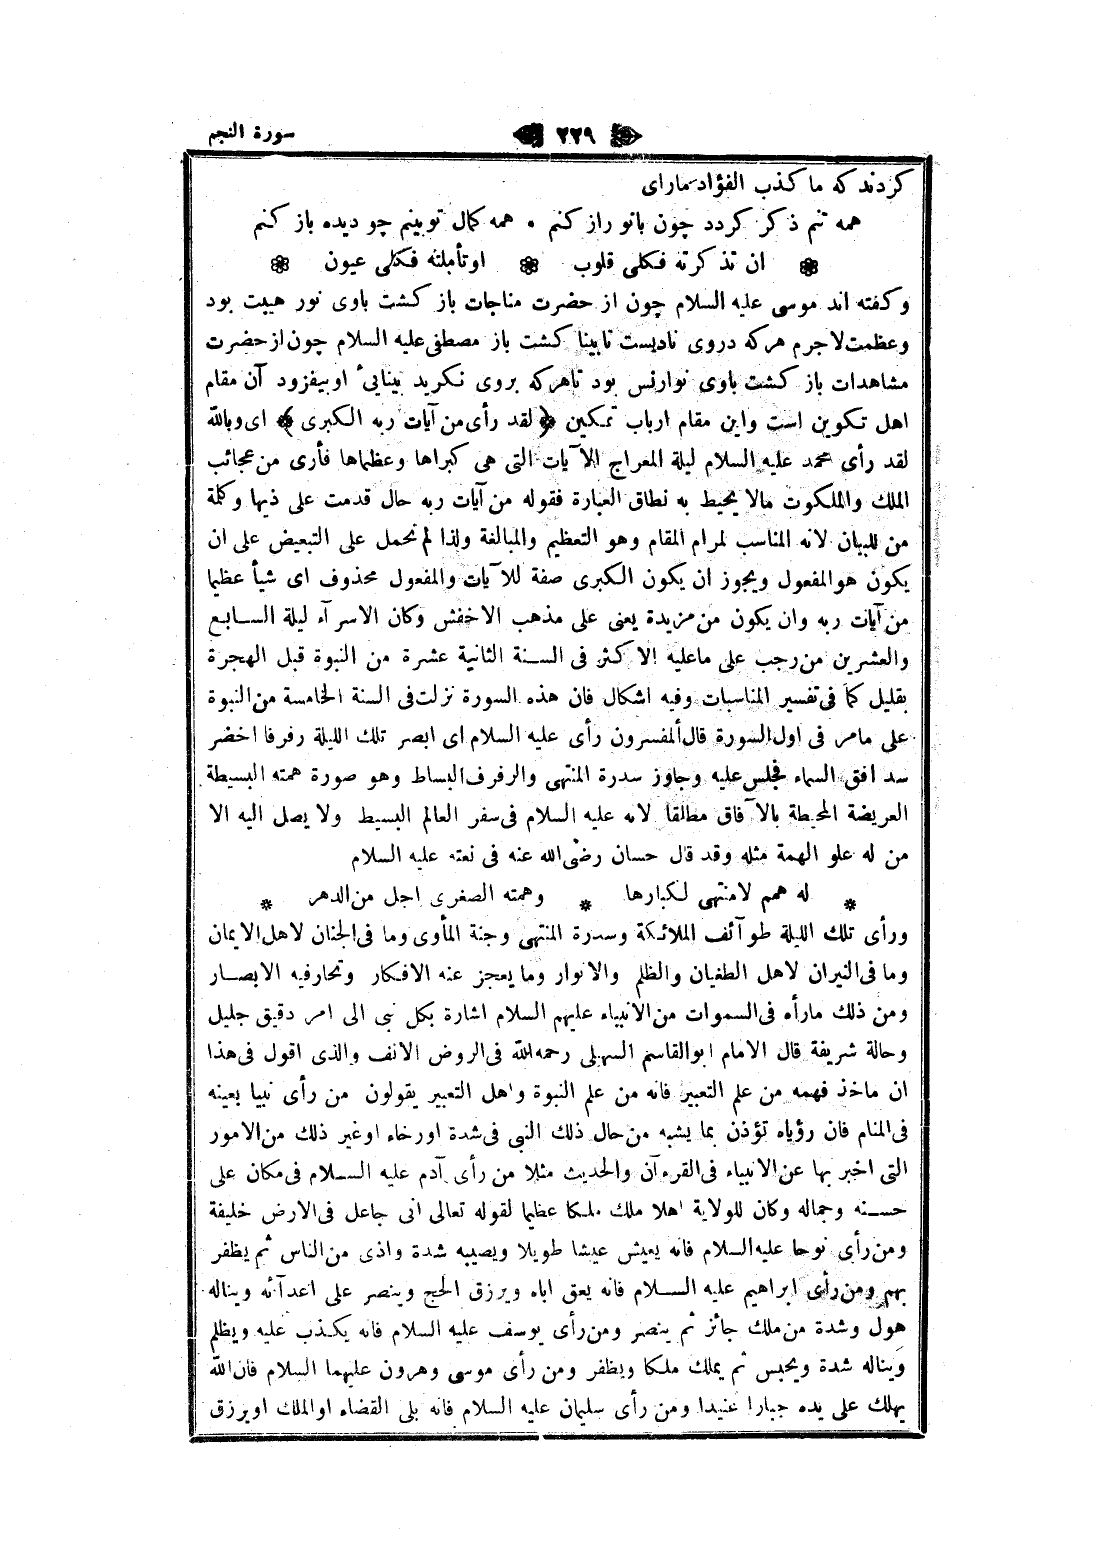 سورة النجم ٢٢٩
كردند كه ما كذب الفؤاد مارای
همه تنم ذكر كردد چون باتو راز كنم * همه كمال تو بينم چو ديده باز كنم
ان تذكرته فكلی قلوب * اوتأملته فكلی عيون
وكفته اند موسی عليه السلام چون از حضرت مناجات باز كشت باوی نور هيبت بود
وعظمت لاجرم هركه دروی ناديست نابينا كشت باز مصطفی عليه السلام چون از حضرت
مشاهدات باز كشت باوی نوارنس بود تاهركه بروی نكريد بينایئ اوبيفزود آن مقام
اهل تكوين است واين مقام ارباب تمكين ﴿ لقد رأی من آيات ربه الكبری ﴾ ای وبالله
لقد رأی محمد عليه السلام ليلة المعراج الآيات التی هی كبراها وعظماها فأری من عجائب
الملك والملكوت مالا يحيط به نطاق العبارة فقوله من آيات ربه حال قدمت علی ذيها وكلة
من للبيان لانه المناسب لمرام المقام وهو التعظيم والمبالغة ولذا لم تحمل علی التبعيض علی ان
يكون هوالمفعول ويجوز ان يكون الكبری صفة للآيات والمفعول محذوف ای شيأ عظيما
من آيات ربه وان يكون من مزيدة يعنی علی مذهب الاخفش وكان الاسرآء ليلة السابع
والعشرين من رجب علی ماعليه الاكثر فی السنة الثانية عشرة من النبوة قبل الهجرة
بقليل كما فی تفسير المناسبات وفيه اشكال فان هذه السورة نزلت فی السنة الخامسة من النبوة
علی مامر فی اول السورة قال المفسرون رأی عليه السلام ای ابصر تلك الليلة رفرفا اخضر
سد افق السماء فجلس عليه وجاوز سدرة المنتهی والرفرف البساط وهو صورة همته البسيطة
العريضة المحيطة بالآفاق مطلقا لانه عليه السلام فی سفر العالم البسيط ولا يصل اليه الا
من له علو الهمة مثله وقد قال حسان رضی الله عنه فی نعته عليه السلام
له همم لامنتهی لكبارها * وهمته الصغری اجل من الدهر
ورأی تلك الليلة طوآئف الملائكة وسدرة المنتهی وجنة المأوی وما فی الجنان لاهل الايمان
وما فی النيران لاهل الطغيان والظلم والانوار وما يعجز عنه الافكار وتحارفيه الابصار
ومن ذلك مارأه فی السموات من الانبياء عليهم السلام اشارة بكل نبی الی امر دقيق جليل
وحالة شريفة قال الامام ابوالقاسم السهيلی رحمه الله فی الروض الانف والذی اقول فی هذا
ان ماخذ فهمه من علم التعبير فانه من علم النبوة واهل التعبير يقولون من رأی نبيا بعينه
فی المنام فان رؤياه تؤذن بما يشبه من حال ذلك النبی فی شدة اورخاء اوغير ذلك من الامور
التی اخبر بها عن الانبياء فی القرءآن والحديث مثلا من رأی آدم عليه السلام فی مكان علی
حسنه وجماله وكان للولاية اهلا ملك ملكا عظيما لقوله تعالی انی جاعل فی الارض خليفة
ومن رأی نوحا عليه السلام فانه يعيش عيشا طويلا ويصيبه شدة واذی من الناس ثم يظفر
بهم ومن رأی ابراهيم عليه السلام فانه يعق اباه ويرزق الحج وينصر علی اعدآئه ويناله
هول وشدة من ملك جائز ثم ينصر ومن رأی يوسف عليه السلام فانه يكذب عليه ويظلم
ويناله شدة ويحبس ثم يملك ملكا ويظفر ومن رأی موسی وهرون عليهما السلام فان الله
يهلك علی يده جبارا عنيدا ومن رأی سليمان عليه السلام فانه يلی القضاء اوالملك اويرزق